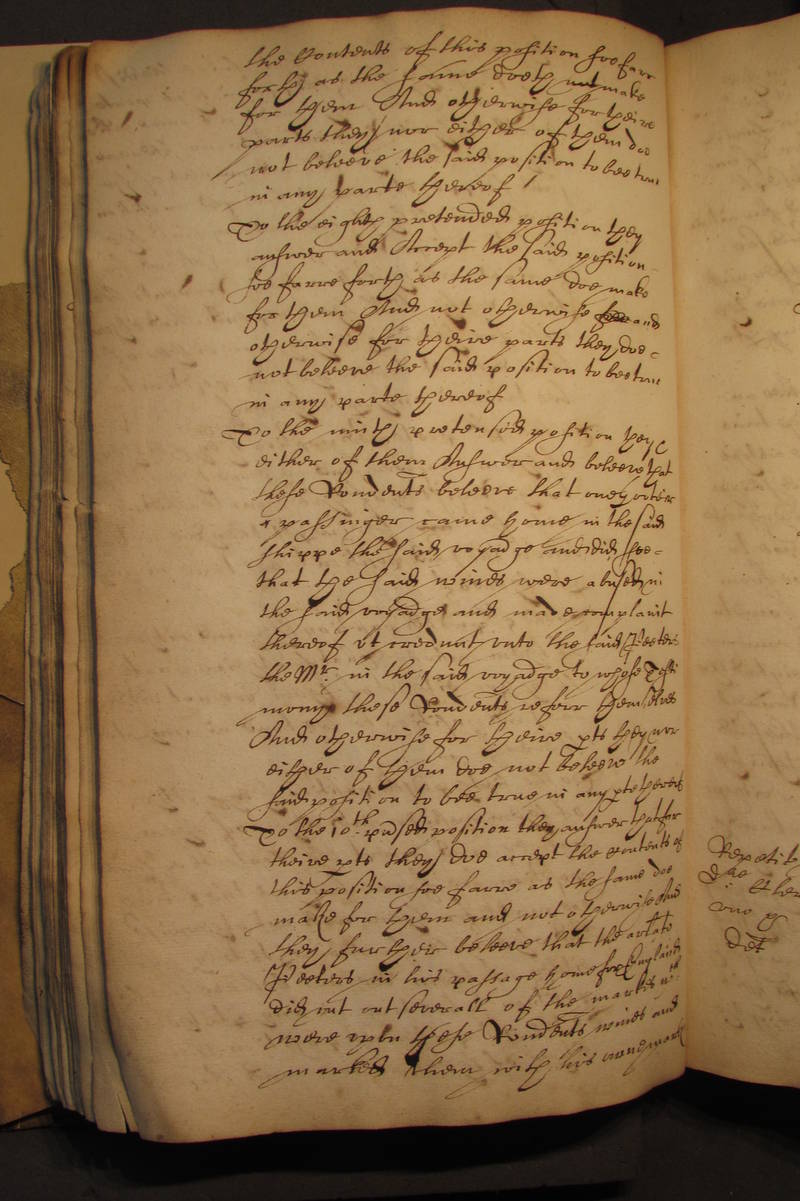 the Contents of this position soe farr
forth as the same doeth not make
for them And otherwise for theire
parts they nor either of them doe
not beleeve the said position to bee true
in any parte thereof /
To the eighth pretended position they
answer and Accept the said position
soe farre forth as the same doe make
for them And not otherwise and
otherwise for theire parts they doe =
not beleeve the said position to bee true
in any parte thereof
To the ninth pretensed position they &
either of them Answer and beleeve that
these Rondents beleeve that one
a passinger came home in the said
shippe the said voyadge and did see =
that the said wines were abused in
the said voyadge and made complaint
thereof vt credunt vnto the said Peeters
the Mr. in the said voyadge to whose Testi
mony these Rondents referr themselves
And otherwise for theire pts they nor
either of them doe not beleeve the
said position to bee true in any pte thereof
To the 10th. pnsed position they answer that for
theire pts they doe accept the contents of
this position soe farre as the same doe
make for them and not otherwise And
they further beleeve that the arlate
Peeters in his passage home for England
did cut out severall of the markes wch.
were vpon these Rondents wines and
marked them with his owne marke
Repetit
det